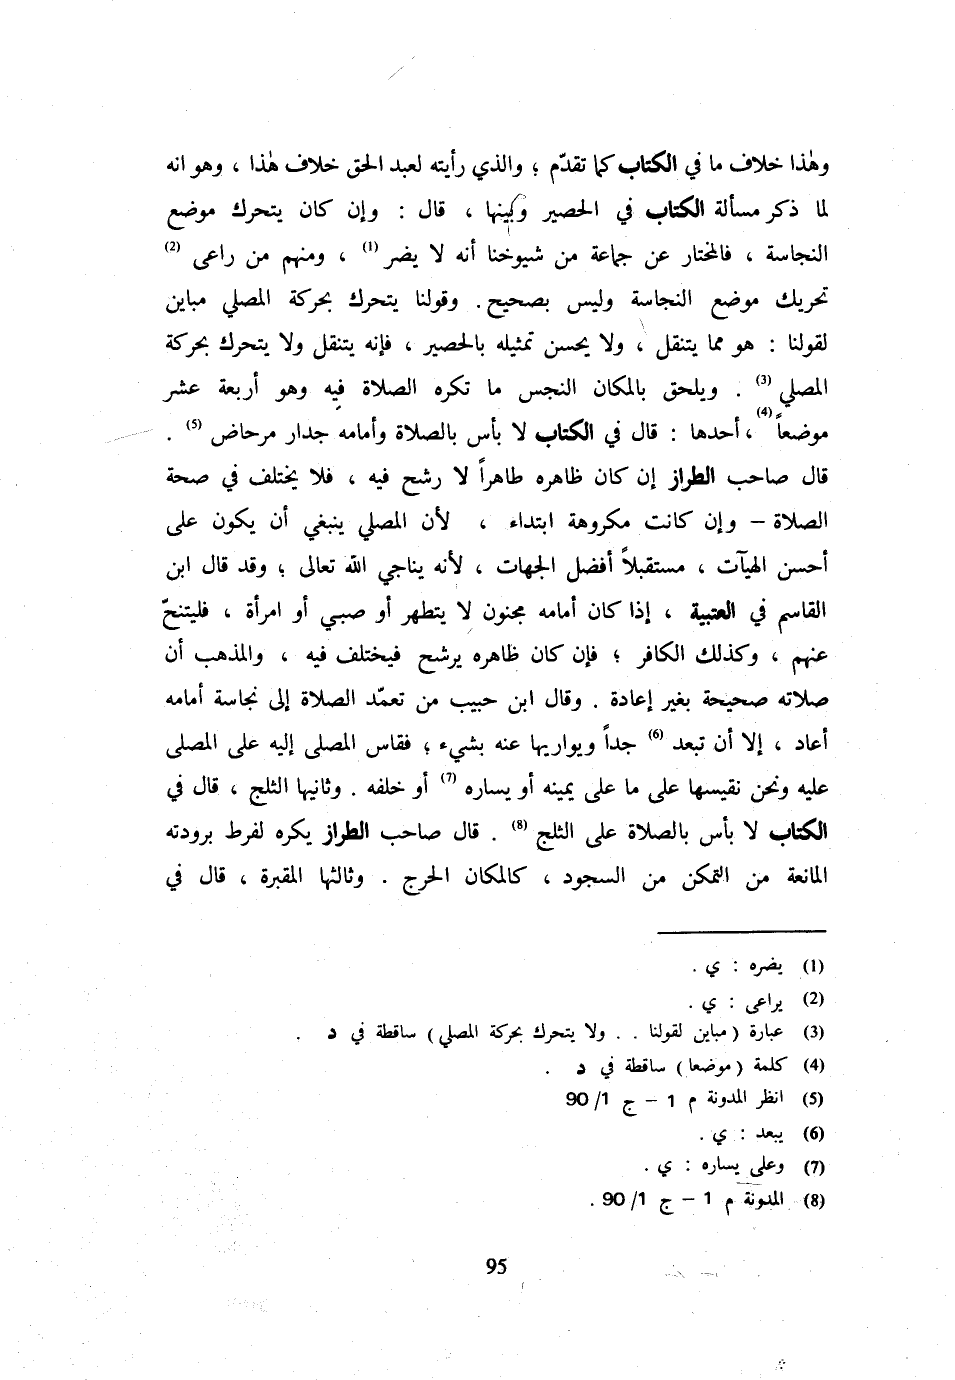 وهٰذا خلاف ما في الكتاب كما تقدّم ؛ والذي رأيته لعبد الحق خلاف هٰذا ، وهو انه
لما ذكر مسألة الكتاب في الحصير ، قال : وإن كان يتحرك موضع
النجاسة ، فالمختار عن جماعة من شيوخنا أنه لا يضر (1) ، ومنهم من راعى (2)
تحريك موضع النجاسة وليس بصحيح . وقولنا يتحرك بحركة المصلي مباين
لقولنا : هو مما يتنقل ، ولا يحسن تمثيله بالحصير ، فإنه يتنقل ولا يتحرك بحركة
المصلي (3) . ويلحق بالمكان النجس ما تكره الصلاة فيه وهو أربعة عشر
موضعاً (4) ، أحدها : قال في الكتاب لا بأس بالصلاة وأمامه جدار مرحاض (5) .
قال صاحب الطراز إن كان ظاهره طاهراً لا رشح فيه ، فلا يختلف في صحة
الصلاة – وإن كانت مكروهة ابتداء ، لأن المصلي ينبغي أن يكون على
أحسن الهيآت ، مستقبلاً أفضل الجهات ، لأنه يناجي الله تعالى ؛ وقد قال ابن
القاسم في العتبية ، إذا كان أمامه مجنون لا يتطهر أو صبي أو امرأة ، فليتنحّ
عنهم ، وكذلك الكافر ؛ فإن كان ظاهره يرشح فيختلف فيه ، والمذهب أن
صلاته صحيحة بغير إعادة . وقال ابن حبيب من تعمّد الصلاة إلى نجاسة أمامه
أعاد ، إلا أن تبعد (6) جداً ويواريها عنه بشيء ؛ فقاس المصلى إليه على المصلى
عليه ونحن نقيسها على ما على يمينه أو يساره (7) أو خلفه . وثانيها الثلج ، قال في
الكتاب لا بأس بالصلاة على الثلج (8) . قال صاحب الطراز يكره لفرط برودته
المانعة من التمكن من السجود ، كالمكان الحرج . وثالثها المقبرة ، قال في
(1) يضره : ي .
(2) يراعى : ي .
(3) عبارة ( مباين لقولنا . . ولا يتحرك بحركة المصلي ) ساقطة في د .
(4) كلمة ( موضعا ) ساقطة في د .
(5) انظر المدونة م 1 – ج 1/ 90
(6) يبعد : ي .
(7) وعلى يساره : ي .
(8) المدونة م 1 – ج 1/ 90 .
95